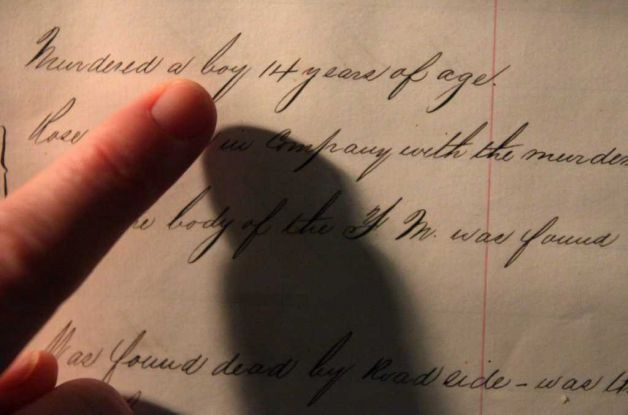 Murdered a boy 14 years of age.
Rose in company with the murder
body of the F M. was found
Was found dead by Road side - was